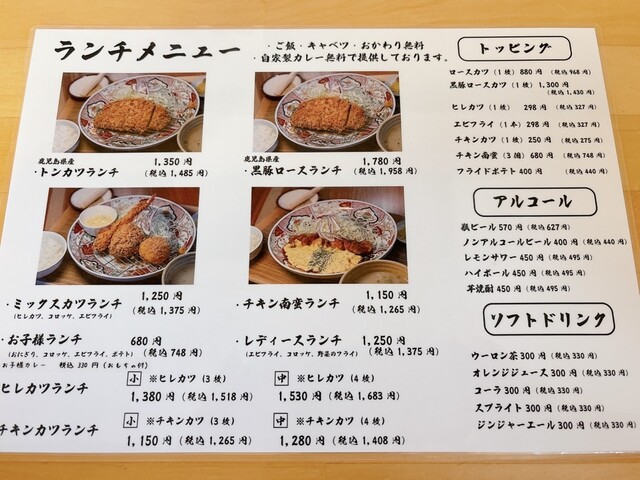 ランチメニュー
・ご飯・キャベツ・おかわり無料
・自家製カレー無料で提供しております。
鹿児島県産
・トンカツランチ
1,350 円
(税込 1,485 円)
鹿児島県産
・黒豚ロースランチ
1,780 円
(税込 1,958 円)
・ミックスカツランチ
(ヒレカツ、コロッケ、エビフライ)
1,250 円
(税込 1,375 円)
チキン南蛮ランチ
1,150 円
(税込 1,265 円)
・お子様ランチ
680 円
(おにぎり、コロッケ、エビフライ、ポテト)
(税込 748 円)
お子様カレー 税込 330 円(おもちゃ付)
・レディースランチ
1,250 円
(エビフライ、コロッケ、野菜のフライ)
(税込 1,375 円)
ヒレカツランチ
小 ※ヒレカツ (3 枚)
1,380 円 (税込 1,518 円)
中 ※ヒレカツ (4 枚)
1,530 円 (税込 1,683 円)
チキンカツランチ
小 ※チキンカツ (3 枚)
1,150 円 (税込 1,265 円)
中 ※チキンカツ (4 枚)
1,280 円 (税込 1,408 円)
トッピング
ロースカツ (1 枚) 880 円 (税込 968 円)
黒豚ロースカツ (1 枚) 1,300 円
(税込 1,430 円)
ヒレカツ (1 枚) 298 円 (税込 327 円)
エビフライ (1 本) 298 円 (税込 327 円)
チキンカツ (1 枚) 250 円 (税込 275 円)
チキン南蛮 (3 個) 680 円 (税込 748 円)
フライドポテト 400 円 (税込 440 円)
アルコール
瓶ビール 570 円 (税込 627 円)
ノンアルコールビール 400 円 (税込 440 円)
レモンサワー 450 円 (税込 495 円)
ハイボール 450 円 (税込 495 円)
芋焼酎 450 円 (税込 495 円)
ソフトドリンク
ウーロン茶 300 円 (税込 330 円)
オレンジジュース 300 円 (税込 330 円)
コーラ 300 円 (税込 330 円)
スプライト 300 円 (税込 330 円)
ジンジャーエール 300 円 (税込 330 円)